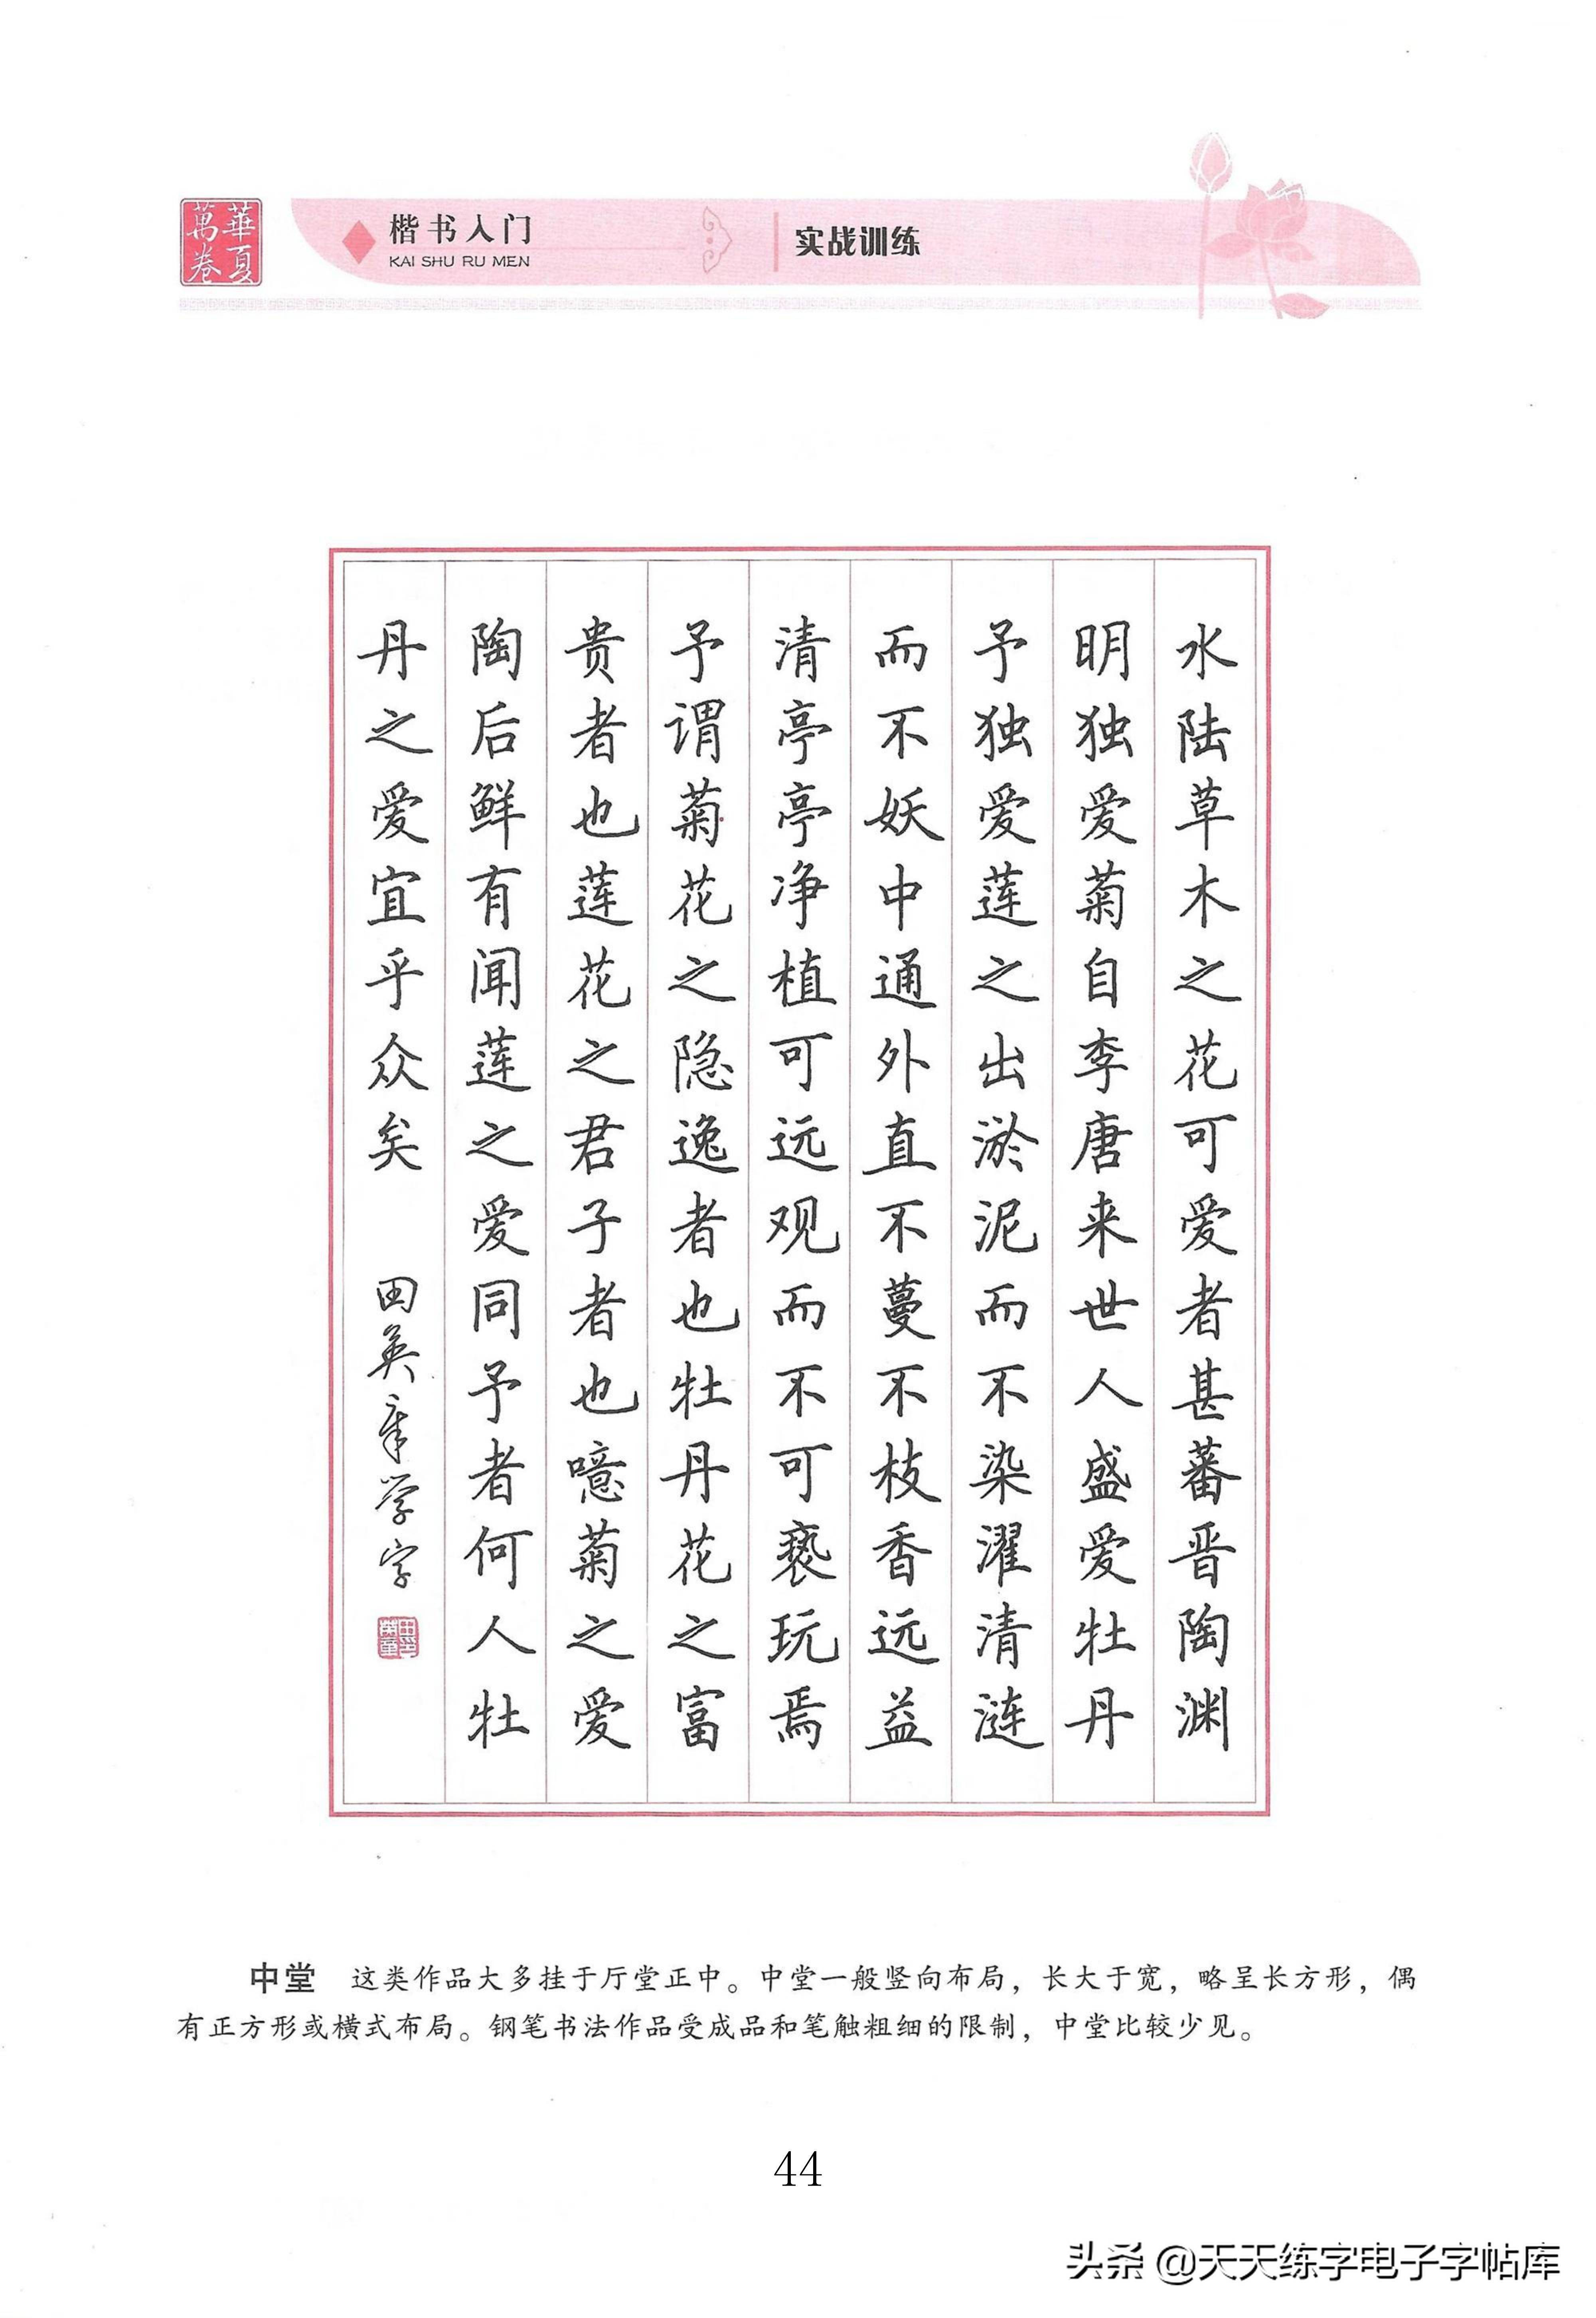 華夏
萬卷
楷书入门
KAI SHU RU MEN
实战训练
水陆草木之花可爱者甚蕃晋陶渊
明独爱菊自李唐来世人盛爱牡丹
予独爱莲之出淤泥而不染濯清涟
而不妖中通外直不蔓不枝香远益
清亭亭净植可远观而不可亵玩焉
予谓菊花之隐逸者也牡丹花之富
贵者也莲花之君子者也噫菊之爱
陶后鲜有闻莲之爱同予者何人牡
丹之爱宜乎众矣 田英章学字
中堂 这类作品大多挂于厅堂正中。中堂一般竖向布局，长大于宽，略呈长方形，偶
有正方形或横式布局。钢笔书法作品受成品和笔触粗细的限制，中堂比较少见。
44
头条 @天天练字电子字帖库